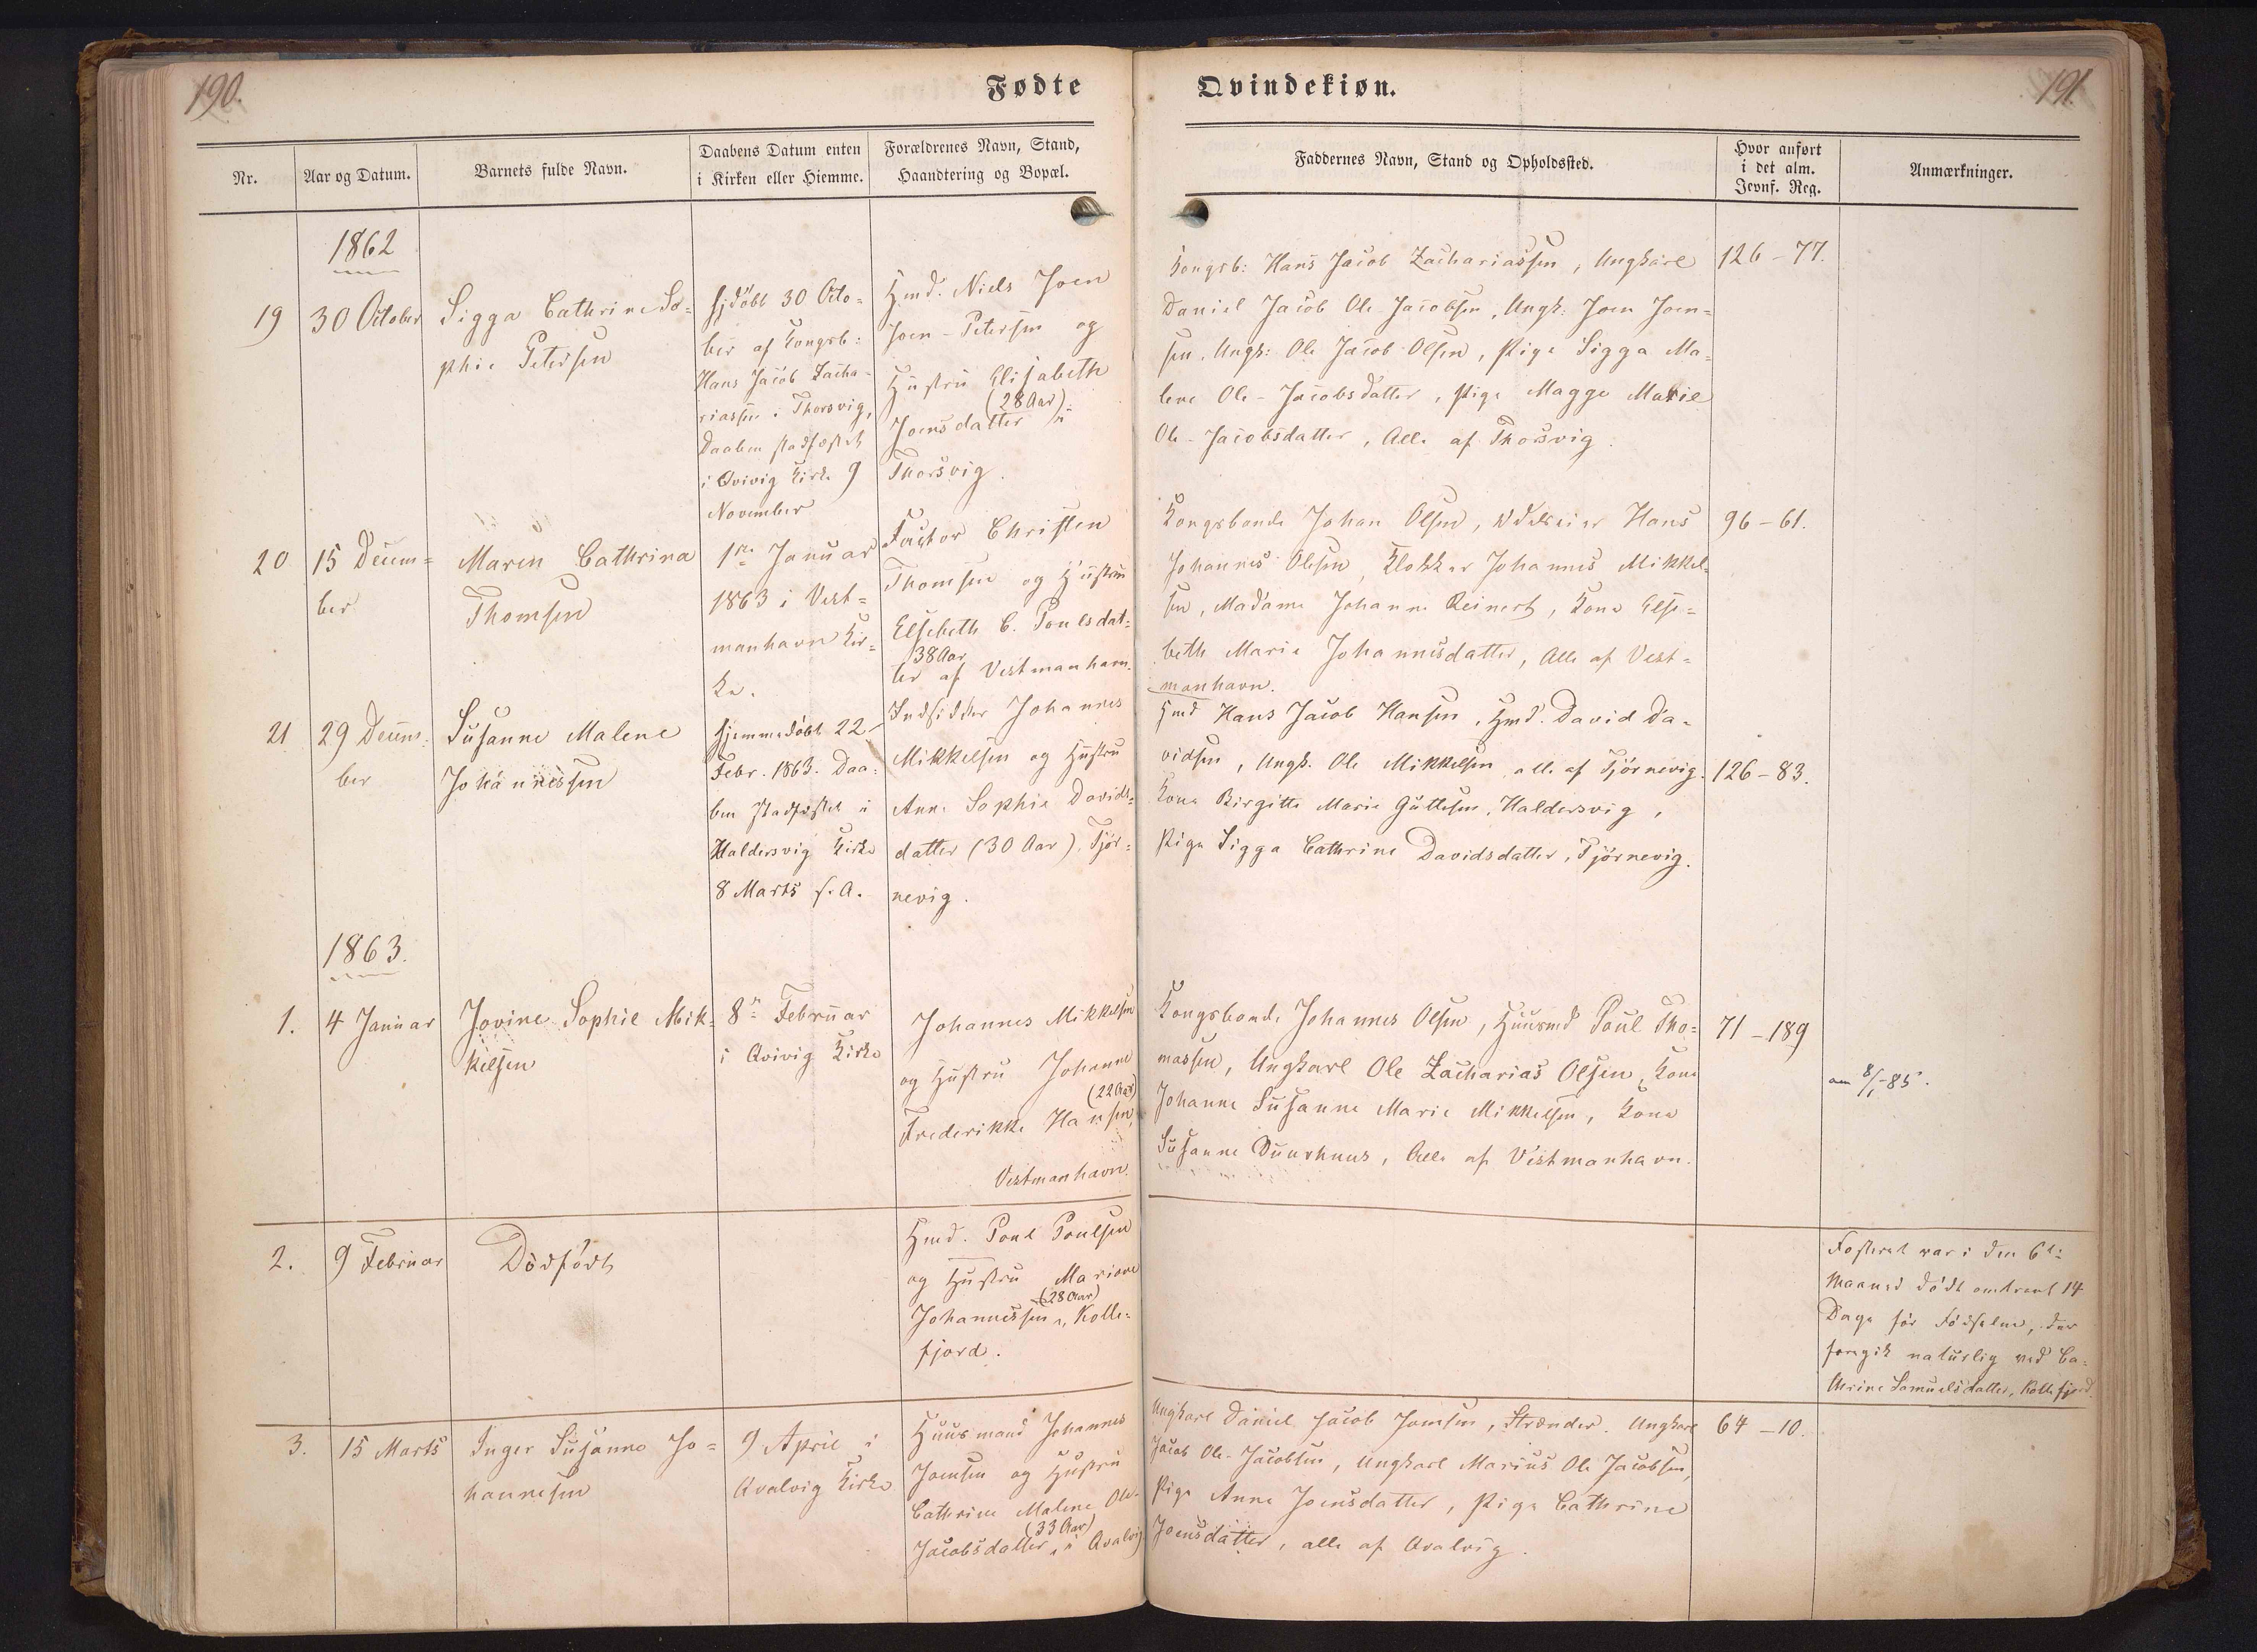 190.
Fødte
Nr.
Aar og Datum.
Barnets fulde Navn.
Daabens Datum enten
i Kirken eller Hiemme.
Forældrenes Navn, Stand,
Haandtering og Bopæl.
1862
19
30 October
Sigga Cathrine So=
phie Petersen
hjdöbt 30 Octo=
ber af Kongsb:
Hans Jacob Zacha=
riassen i Thorsvig,
Daaben stadfæstet
i Qvivig Kirke 9
November
Hmd. Niels Joen
Joen-Petersen og
Hustru Elisabeth
(28 Aar)
Joensdatter i
Thorsvig.
20
15 Decem=
ber
Maren Cathrina
Thomsen
1ste Januar
1863 i Vest=
manhavn Kir=
ke.
Factor Christen
Thomsen og Hustru
Elsebeth C. Poulsdat=
38 Aar
ter af Vestmanhavn.
21
29 Decem=
ber
Susanne Malene
Johannessen
Hjemmedöbt 22
Febr. 1863. Daa=
ben stadfæstet i
Haldersvig Kirke
8 Marts s. A.
Indsidder Johannes
Mikkelsen og Hustru
Anne Sophie Davids=
datter (30 Aar). Tjör=
nevig.
1863.
1.
4 Januar
Jovine Sophie Mik=
kelsen
8de Februar
i Qvivig Kirke
Johannes Mikkelsen
og Hustru Johanne
(22 Aar)
Frederikke Hansen,
Vestmanhavn.
2.
9 Februar
Dödfödt
Hmd. Poul Poulsen
og Hustru Mariane
(28 Aar)
Johannessen, Kolle=
fjord.
3.
15 Marts
Inger Susanne Jo=
hannesen
9 April i
Qvalvig Kirke
Huusmand Johannes
Joensen og Hustru
Cathrine Malene Ole-
(33 Aar)
Jacobsdatter, i Qvalvig
Qvindekiøn.
191.
Faddernes Navn, Stand og Opholdssted.
Hvor anført
i det alm.
Jevnf. Reg.
Anmærkninger.
Kongsb: Hans Jacob Zachariassen, Ungkarl
Daniel Jacob Ole Jacobsen, Ungk: Joen Joen=
sen, Ungk: Ole Jacob Olsen, Pige Sigga Ma=
lene Ole-Jacobsdatter, Pige Magge Marie
Ole-Jacobsdatter, Alle af Thorsvig.
126-77.
Kongsbonde Johan Olsen, Odelseier Hans
Johannes Olesen, Klokker Johannes Mikkel=
sen, Madame Johanne Reinert, Kone Else=
beth Marie Johannesdatter, Alle af Vest=
manhavn.
96-61.
Hmd Hans Jacob Hansen, Hmd. David Da=
vidsen, Ungk. Ole Mikkelsen alle af Tjörnevig.
Kone Birgitte Marie Guttesen, Haldersvig,
Pige Sigga Cathrine Davidsdatter, Tjörnevig.
126-83.
Kongsbonde Johannes Olsen, Huusmd Poul Tho=
massen, Ungkarl Ole Zacharias Olsen, Kone
Johanne Susanne Marie Mikkelsen, Kone
Susanne Duurhuus, Alle af Vestmanhavn.
71-189
am 8/1-85.
Fosteret var i den 6te
Maaned dödt omtrent 14
Dage för Födselen, der
foregik naturlig ved Ca=
thrine Samuelsdatter, Kollefjord.
Ungkarl Daniel Jacob Joensen, Strænder. Ungkarl
Jacob Ole-Jacobsen, Ungkarl Marius Ole Jacobsen,
Pige Anne Joensdatter, Pige Cathrine
Joensdatter, alle af Qvalvig.
64-10.